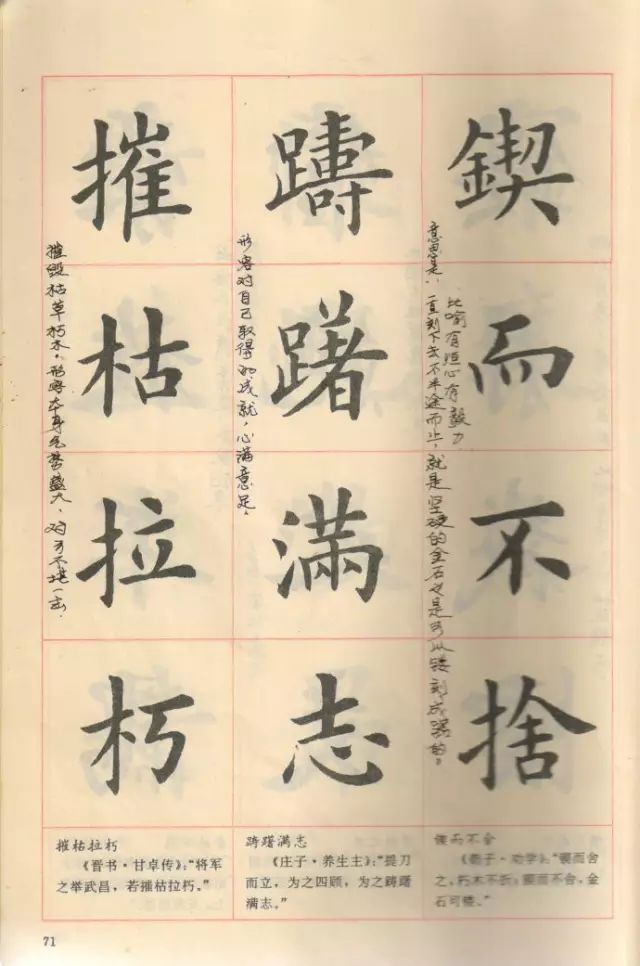 鍥而不捨
躊躇滿志
摧枯拉朽
意思是：一直刻下去不半途而止，就是坚硬的金石也是可以镂刻成器的。
比喻有恒心有毅力
形容对自己取得的成就，心满意足。
摧毁枯草朽木。形容本身气势盛大，对方不堪一击。
摧枯拉朽
《晋书·甘卓传》：“将军
之举武昌，若摧枯拉朽。”
踌躇满志
《庄子·养生主》：“提刀
而立，为之四顾，为之踌躇
满志。”
锲而不舍
《荀子·劝学》：“锲而舍
之，朽木不折；锲而不舍，金
石可镂。”
71